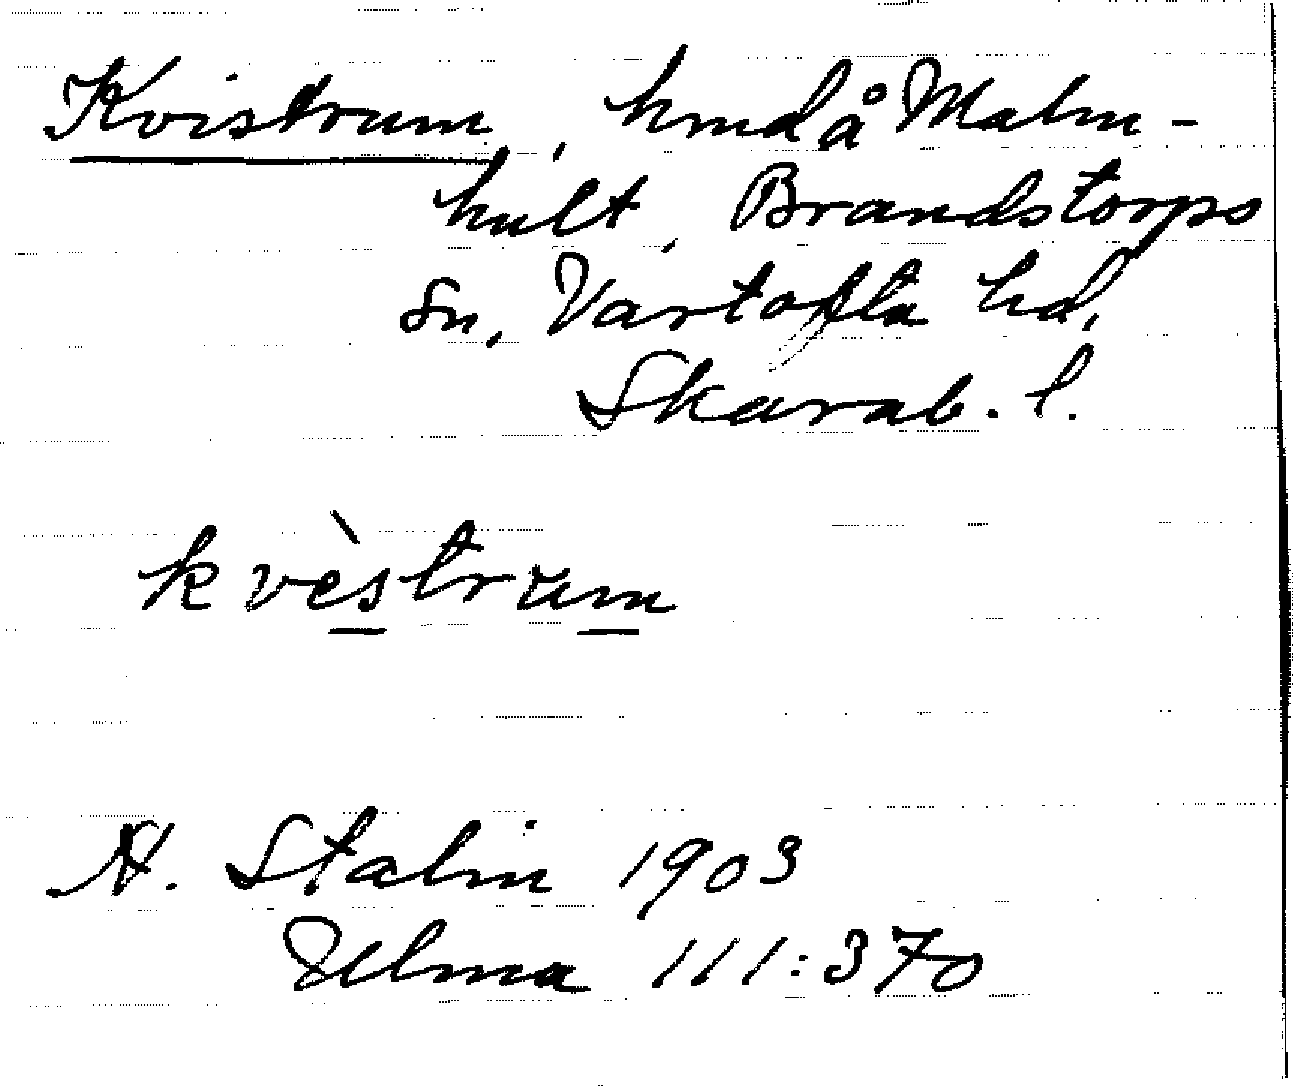 Kvistrum, hmd å Malm-
hult, Brandstorps
sn, Vartofta hd,
Skarab. l.
kvèstrum
A. Stalin 1903
Ulma 111:370